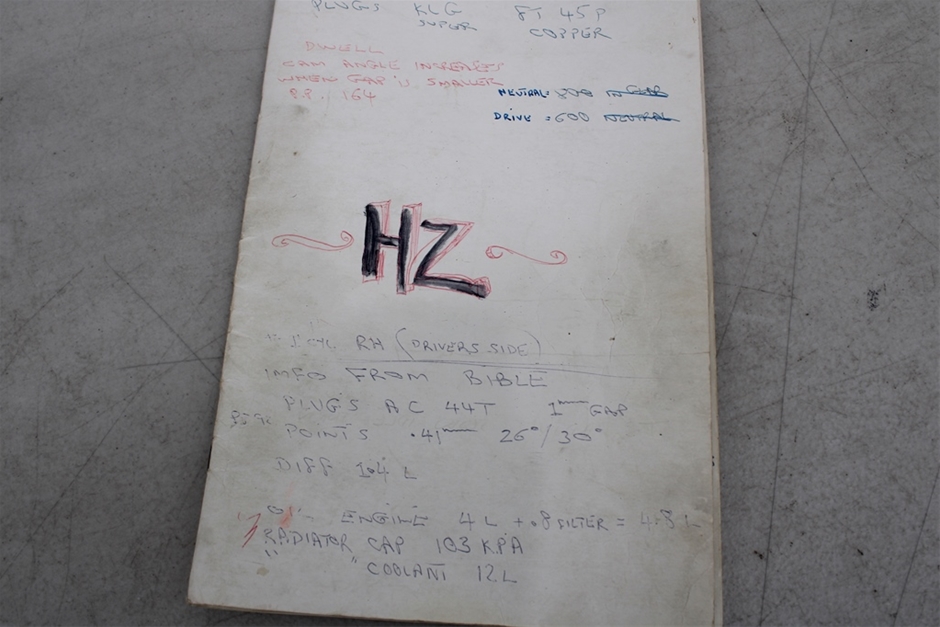 PLUGS KLG 8T 45P
SUPER COPPER
DWELL
CAM ANGLE INCREASES
WHEN GAP IS SMALLER
P.P. 164
NEUTRAL = 800 IN GEAR
DRIVE = 600 NEUTRAL
HZ
1 CYL RH (DRIVERS SIDE)
INFO FROM BIBLE
PLUGS AC 44T 1mm GAP
POINTS .41mm 26°/30°
DIFF 1.4 L
OIL ENGINE 4 L + .8 FILTER = 4.8 L
RADIATOR CAP 103 KPA
" COOLANT 12 L